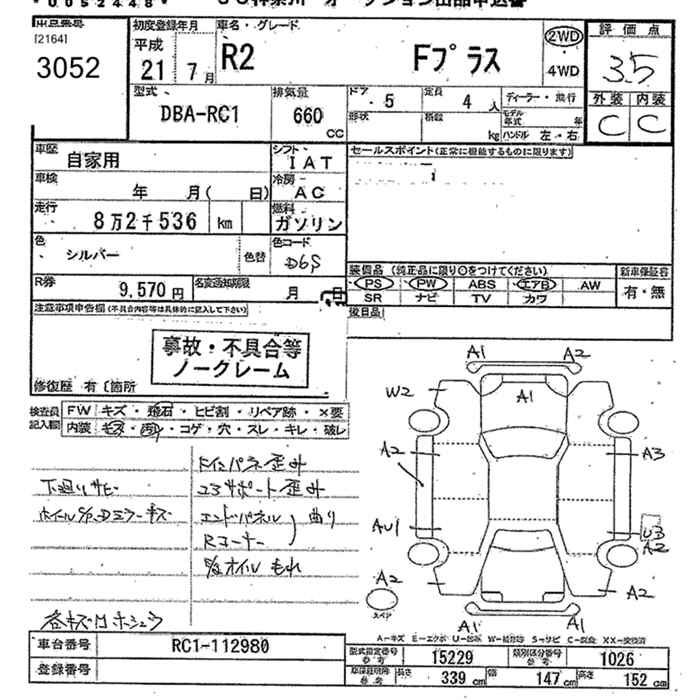 [2164]
3052
初度登録年月
平成
21年 7月
車名・グレード
R2 Fプラス
2WD
4WD
評価点
3.5
外装 内装
C C
型式
DBA-RC1
排気量
660 CC
ドア 5
定員 4人
形状
積数 kg
ディーラー・並行
モデル年式 年
ハンドル 左・右
車歴
自家用
シフト
IAT
セールスポイント(正常に機能するものに限ります)
車検
年 月( 日)
冷房
AC
走行
8万2千536 km
燃料
ガソリン
色
シルバー
色替
色コード
D6S
R券
9,570円
名変通知期限
月
装備品(純正品に限り○をつけてください)
新車保証書
PS PW ABS エアB AW
SR ナビ TV カワ
有・無
後日品
注意事項申告欄(不具合内容等は具体的に記入して下さい)
事故・不具合等
ノークレーム
修復歴 有〔箇所
検査員
記入欄
FW キズ・飛石・ヒビ割・リペア跡・×要
内装 コゲ・穴・スレ・キレ・破レ
下廻りサビ
コアサポート歪み
エンドパネル 曲り
Rコーナー
オイルもれ
A1 A2
W2 A1
A2 A3
AU1 U3
A2 A2
A2
A1 A1
スペア
車台番号 RC1-112980
登録番号
型式指定番号 参考 15229
類別区分番号 参考 1026
参考 長さ 339 cm 幅 147 cm 高さ 152 cm